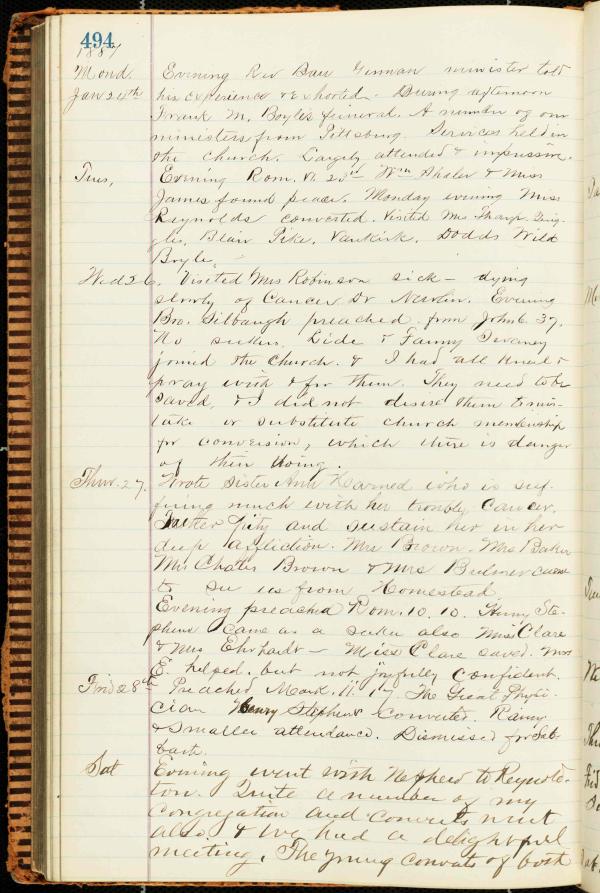 494
1887
Mond. Evening Rev Baur German minister told
Jan 24th his experience & exhorted. During afternoon
Frank M. Boyles funeral. A number of our
ministers from Pittsburg. Services held in
the church. Largely attended & impressive.
Tues, Evening Rom. VI. 23rd Wm Shaler & Miss
James found peace. Monday evening Miss
Reynolds converted. Visited Mrs Tharp.
Blair Pike, Vankirk, Dodds Wild
Boyle.
Wed 26. Visited Mrs Robinson sick - dying
slowly of Cancer Dr Newlin. Evening
Bro. Silbaugh preached from John 6. 37.
No seeker. Lide & Fanny
joined the church. & I had all kneel &
pray with & for them. They need to be
saved, & I did not desire them to mis-
take or substitute church membership
for conversion, which there is danger
of their doing.
Thur. 27. Wrote Sister Ann Learned who is suf-
firing much with her trouble Cancer.
Father Pity and sustain her in her
deep affliction. Mrs Brown. Mrs Baker
Mrs Brown & Mrs Bulmer came
to see us from Homestead.
Evening preached Rom. 10. 10. Henry Ste-
phens came as a seeker also Miss Clare
& Mrs Ehrhardt - Miss Clare saved. Mrs
E. helped, but not joyfully confident.
Frid 28th Preached Mark. II. 17. The Great Physi-
cian Henry Stephens Converted. Rainy
& smaller attendance. Dismissed for Sab-
bath.
Sat Evening went with Nephew to Reynol-
ton. Quite a number of my
congregation and converts went
also. & we had a delightful
meeting. The young converts of both